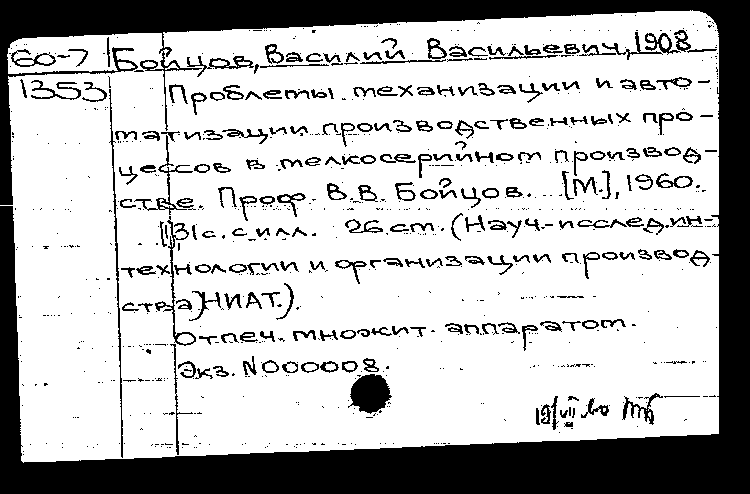 60-7 Бойцов, Василий Васильевич, 1908
1353 Проблемы механизации и авто-
матизации производственных про-
цессов в мелкосерийном производ-
стве. Проф. В.В. Бойцов. [М.], 1960.
[1], 31с. с илл. 26 см. (Науч.-исслед. ин-т
технологии и организации производ-
ства) НИАТ.).
Отпеч. множит. аппаратом.
Экз. N000008.
19/VII 60